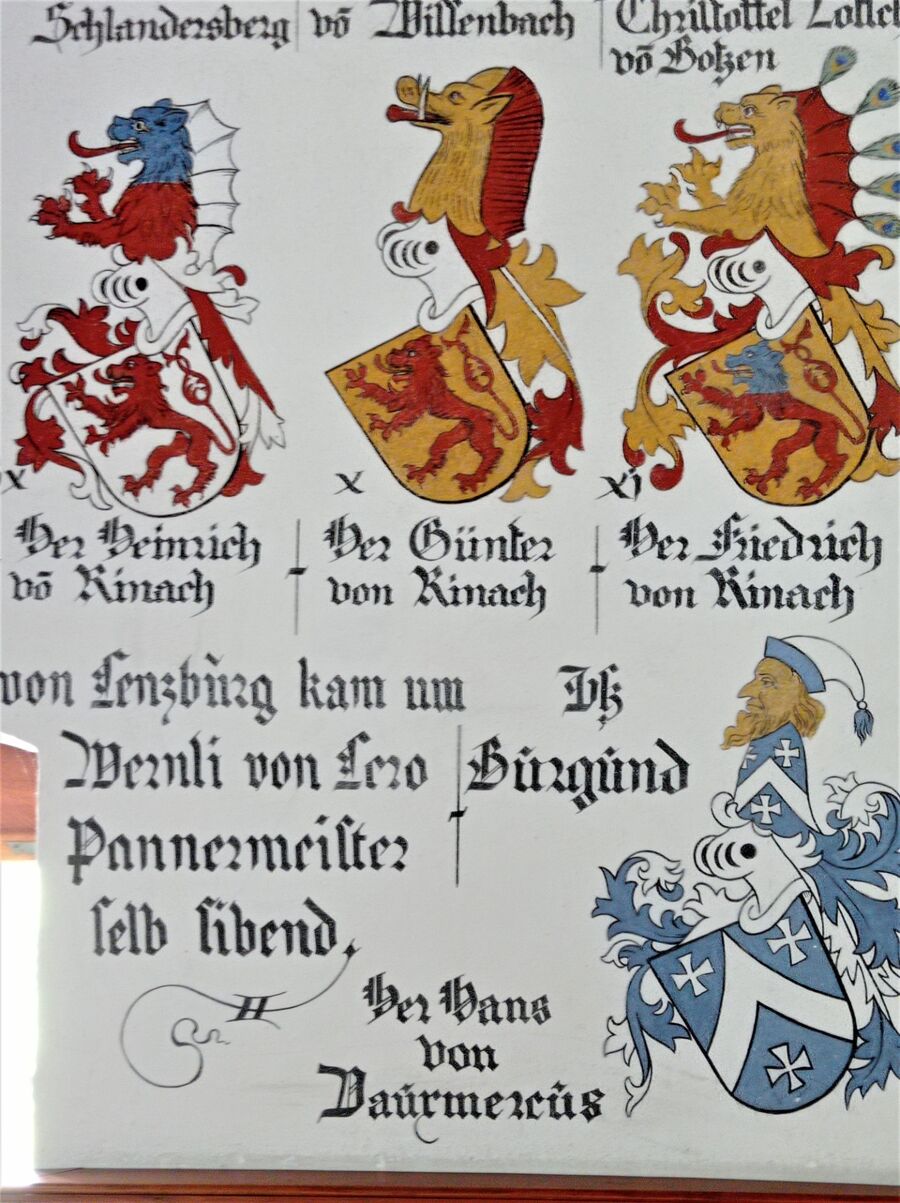 Schlandersberg
võ Willenbach
Christoffel
võ Botzen
x
x
xj
Her Heinrich
võ Rinach
Her Günter
von Rinach
Her Friedrich
von Rinach
von Lenzbürg kam um
Wernli von Lero
Pannermeiſter
ſelb ſibend,
Burgund
Her Hans
von
Vaúxmercús